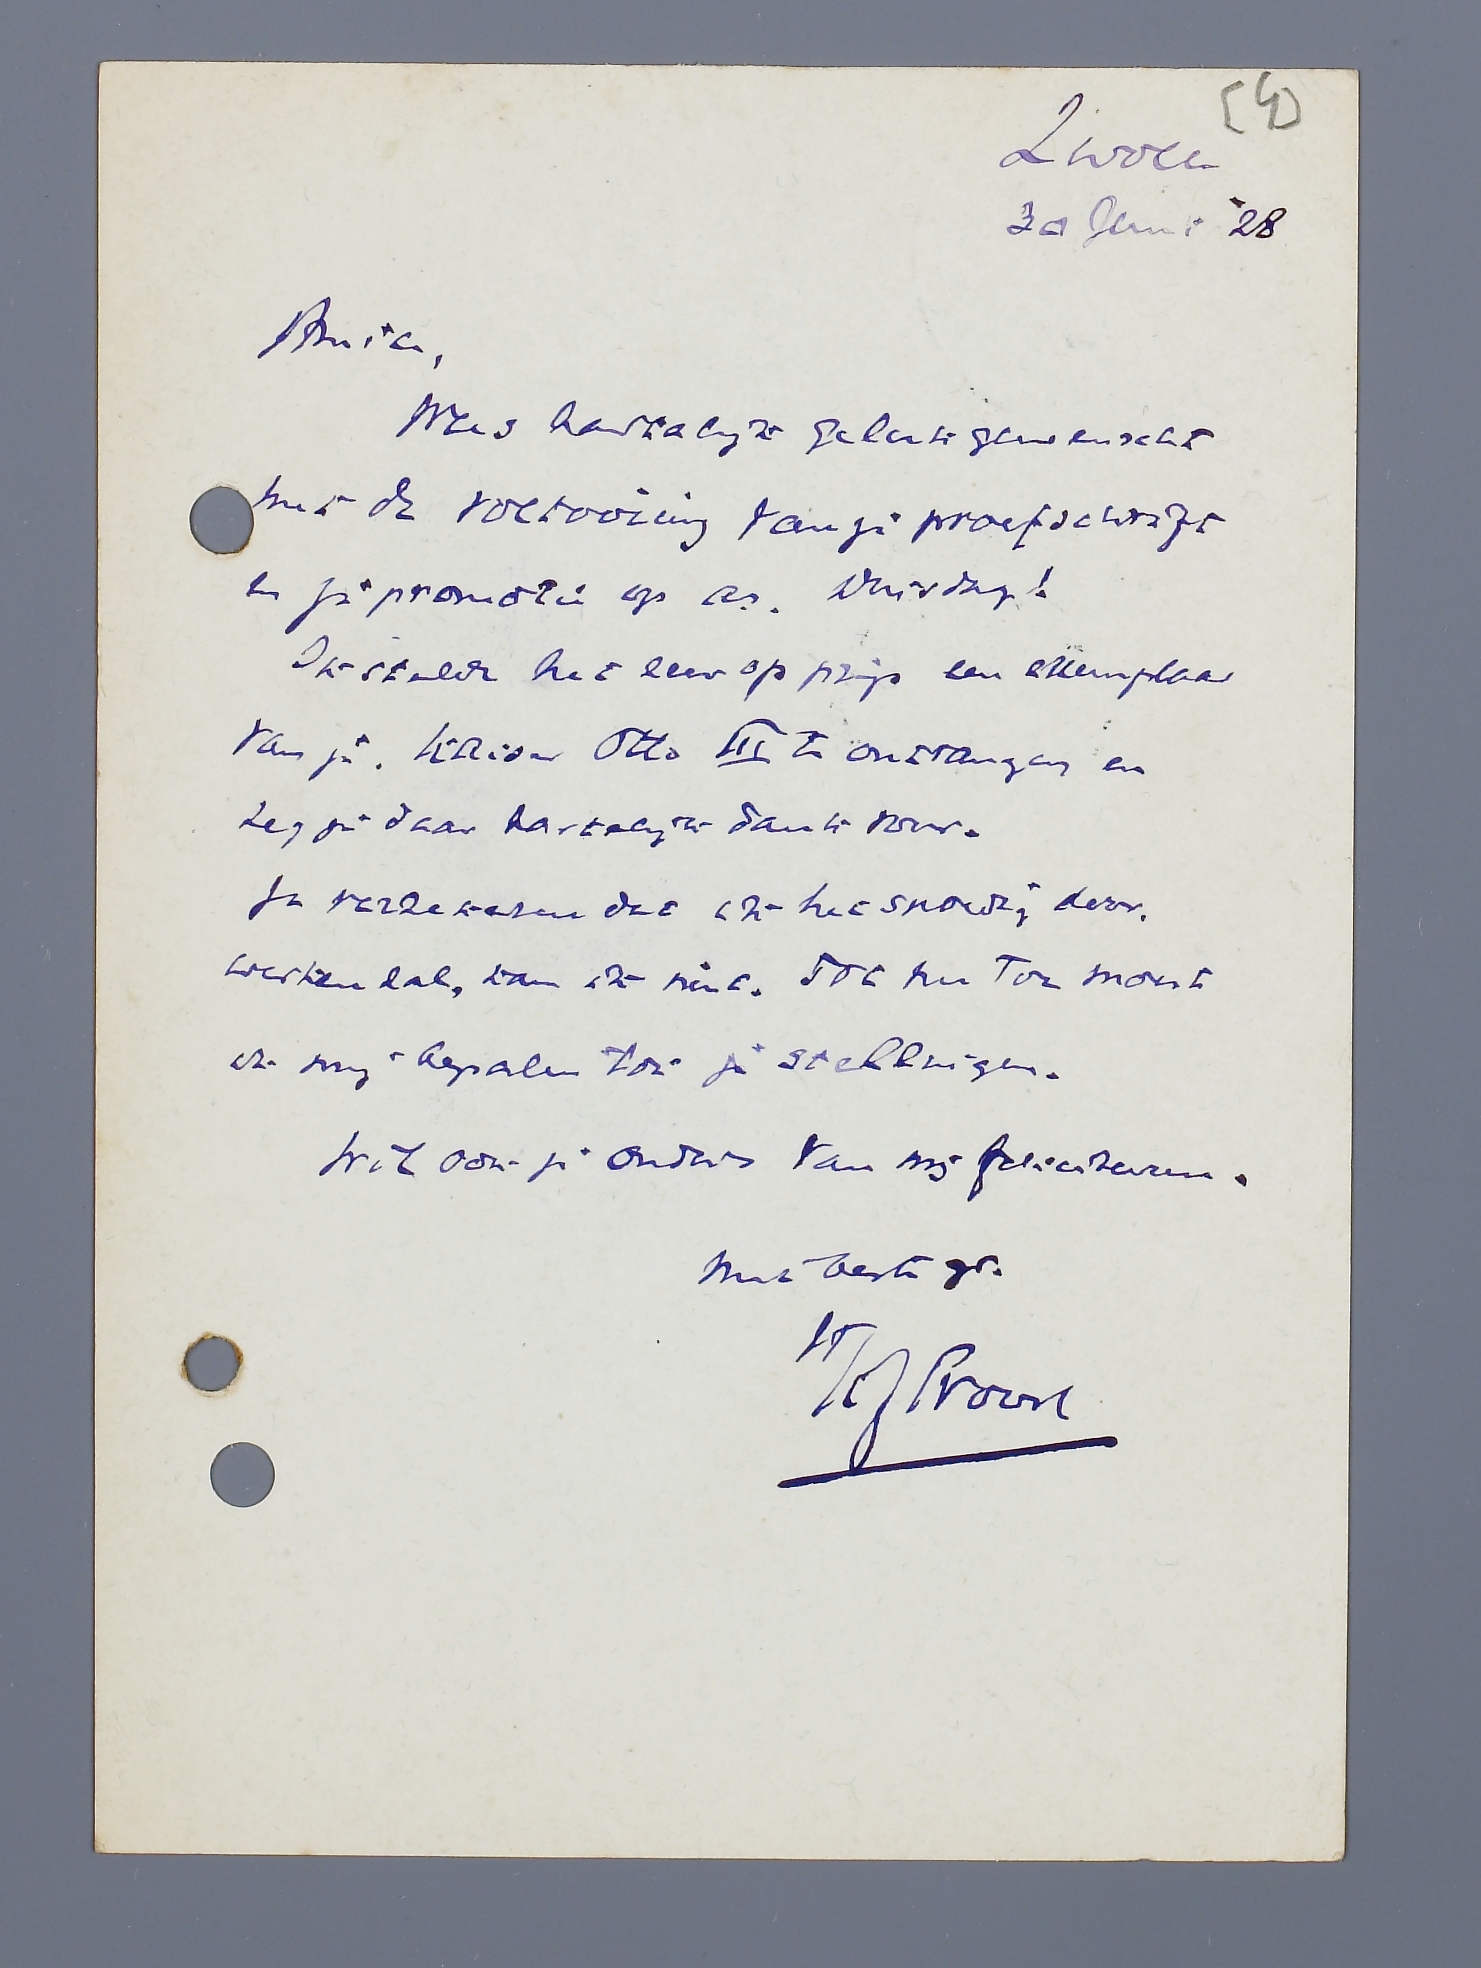 [4]
Zwolle
30 Juni '28
Amice,
Wees hartelijk gelukgewenscht
met de voltooiing van je proefschrift
en je promotie op as. Dinsdag!
Ik stelde het zeer op prijs een exemplaar
van je. Keizer Otto III te ontvangen en
zeg je daar hartelijk dank voor.
Je verzekeren dat ik het spoedig door-
werken zal, kan ik niet. Tot nu toe moest
ik mij bepalen tot je stellingen.
Wil ook je ouders van mij feliciteeren.
Met beste gr.
Proost